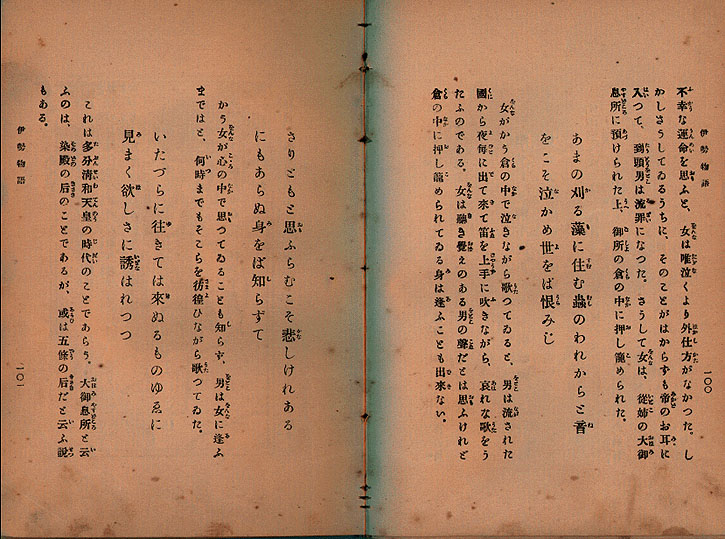 伊勢物語
一〇〇
不幸な運命を思ふと、女は唯泣くより外仕方がなかつた。し
かしさうしてゐるうちに、そのことがはからずも帝のお耳に
入つて、到頭男は流罪になつた。さうして女は、從姉の大御
息所に預けられた上、御所の倉の中に押し籠められた。
あまの刈る藻に住む蟲のわれからと音
をこそ泣かめ世をば恨みじ
女がかう倉の中で泣きながら歌つてゐると、男は流された
國から夜毎に出て來て笛を上手に吹きながら、哀れな歌をう
たふのである。女は聽き覺えのある男の聲だとは思ふけれど
倉の中に押し籠められてゐる身は逢ふことも出來ない。
さりともと思ふらむこそ悲しけれある
にもあらぬ身をば知らずて
かう女が心の中で思つてゐることも知らず、男は女に逢ふ
まではと、何時までもそこらを彷徨ひながら歌つてゐた。
いたづらに往きては來ぬるものゆゑに
見まく欲しさに誘はれつつ
これは多分淸和天皇の時代のことであらう。大御息所と云
ふのは、染殿の后のことであるが、或は五條の后だと云ふ說
もある。
伊勢物語
一〇一